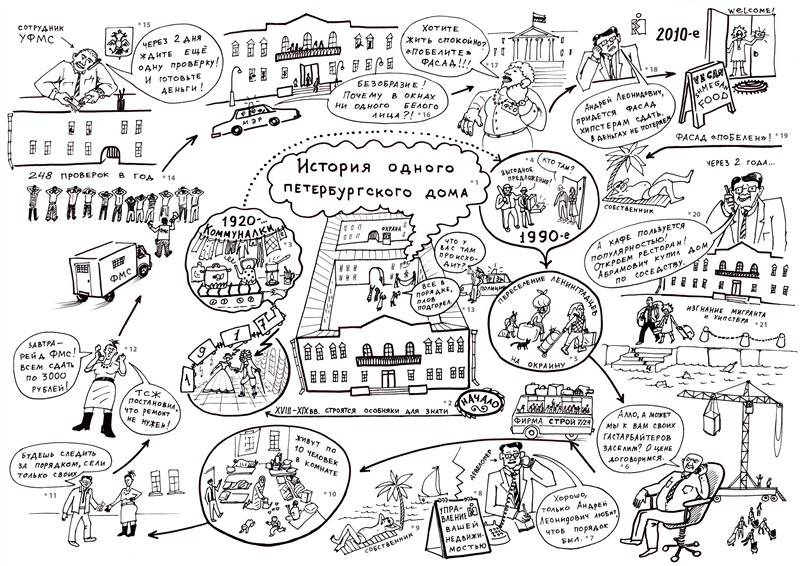 СОТРУДНИК
УФМС
*15
ЧЕРЕЗ 2 ДНЯ
ЖДИТЕ ЕЩЁ
ОДНУ ПРОВЕРКУ!
И ГОТОВЬТЕ
ДЕНЬГИ!
248 ПРОВЕРОК В ГОД *14
БЕЗОБРАЗИЕ!
ПОЧЕМУ В ОКНАХ
НИ ОДНОГО БЕЛОГО
ЛИЦА?! *16
МЭР
ХОТИТЕ
ЖИТЬ СПОКОЙНО?
"ПОБЕЛИТЕ"
ФАСАД!!!
*17
2010-е
*18
АНДРЕЙ ЛЕОНИДОВИЧ,
ПРИДЕТСЯ ФАСАД
ХИПСТЕРАМ СДАТЬ,
В ДЕНЬГАХ НЕ ПОТЕРЯЕМ.
WELCOME!
VEGAN
SHMEGAN
FOOD
ФАСАД "ПОБЕЛЕН"! *19
СОБСТВЕННИК
*20
ЧЕРЕЗ 2 ГОДА...
А КАФЕ ПОЛЬЗУЕТСЯ
ПОПУЛЯРНОСТЬЮ!
ОТКРОЕМ РЕСТОРАН!
АБРАМОВИЧ КУПИЛ ДОМ
ПО СОСЕДСТВУ.
ИЗГНАНИЕ МИГРАНТА
И ХИПСТЕРА *21
ИСТОРИЯ ОДНОГО
ПЕТЕРБУРГСКОГО ДОМА *1
XVIII-XIX вв. СТРОЯТСЯ ОСОБНЯКИ ДЛЯ ЗНАТИ *2
НАЧАЛО
1917
1920-
КОММУНАЛКИ
*3
*4
ВЫГОДНОЕ
ПРЕДЛОЖЕНИЕ!
КТО ТАМ?
1990-е
ПЕРЕСЕЛЕНИЕ ЛЕНИНГРАДЦЕВ
*5
НА ОКРАИНУ
ФИРМА СТРОЙ 7/24
АЛЛО, А МОЖЕТ
МЫ К ВАМ СВОИХ
ГАСТАРБАЙТЕРОВ
ЗАСЕЛИМ? О ЦЕНЕ
ДОГОВОРИМСЯ.
*6
ХОРОШО,
ТОЛЬКО АНДРЕЙ
ЛЕОНИДОВИЧ ЛЮБИТ,
ЧТОБ ПОРЯДОК
БЫЛ. *7
ДЕВЕЛОПЕР
*8
УПРА-
ВЛЕНИЕ
ВАШЕЙ
НЕДВИЖИ-
МОСТЬЮ
*9
СОБСТВЕННИК
ЖИВУТ ПО
10 ЧЕЛОВЕК
В КОМНАТЕ
*10
БУДЕШЬ СЛЕДИТЬ
ЗА ПОРЯДКОМ, СЕЛИ
ТОЛЬКО СВОИХ.
*11
*12
ЗАВТРА-
РЕЙД ФМС!
ВСЕМ СДАТЬ
ПО 3000
РУБЛЕЙ!
ТСЖ
ПОСТАНОВИЛ,
ЧТО РЕМОНТ
НЕ НУЖЕН!
ФМС
ОХРАНА
ЧТО У
ВАС ТАМ
ПРОИС-
ХОДИТ?
ВСЕ В
ПОРЯДКЕ,
ПЛОВ
ПОДГОРЕЛ.
*13